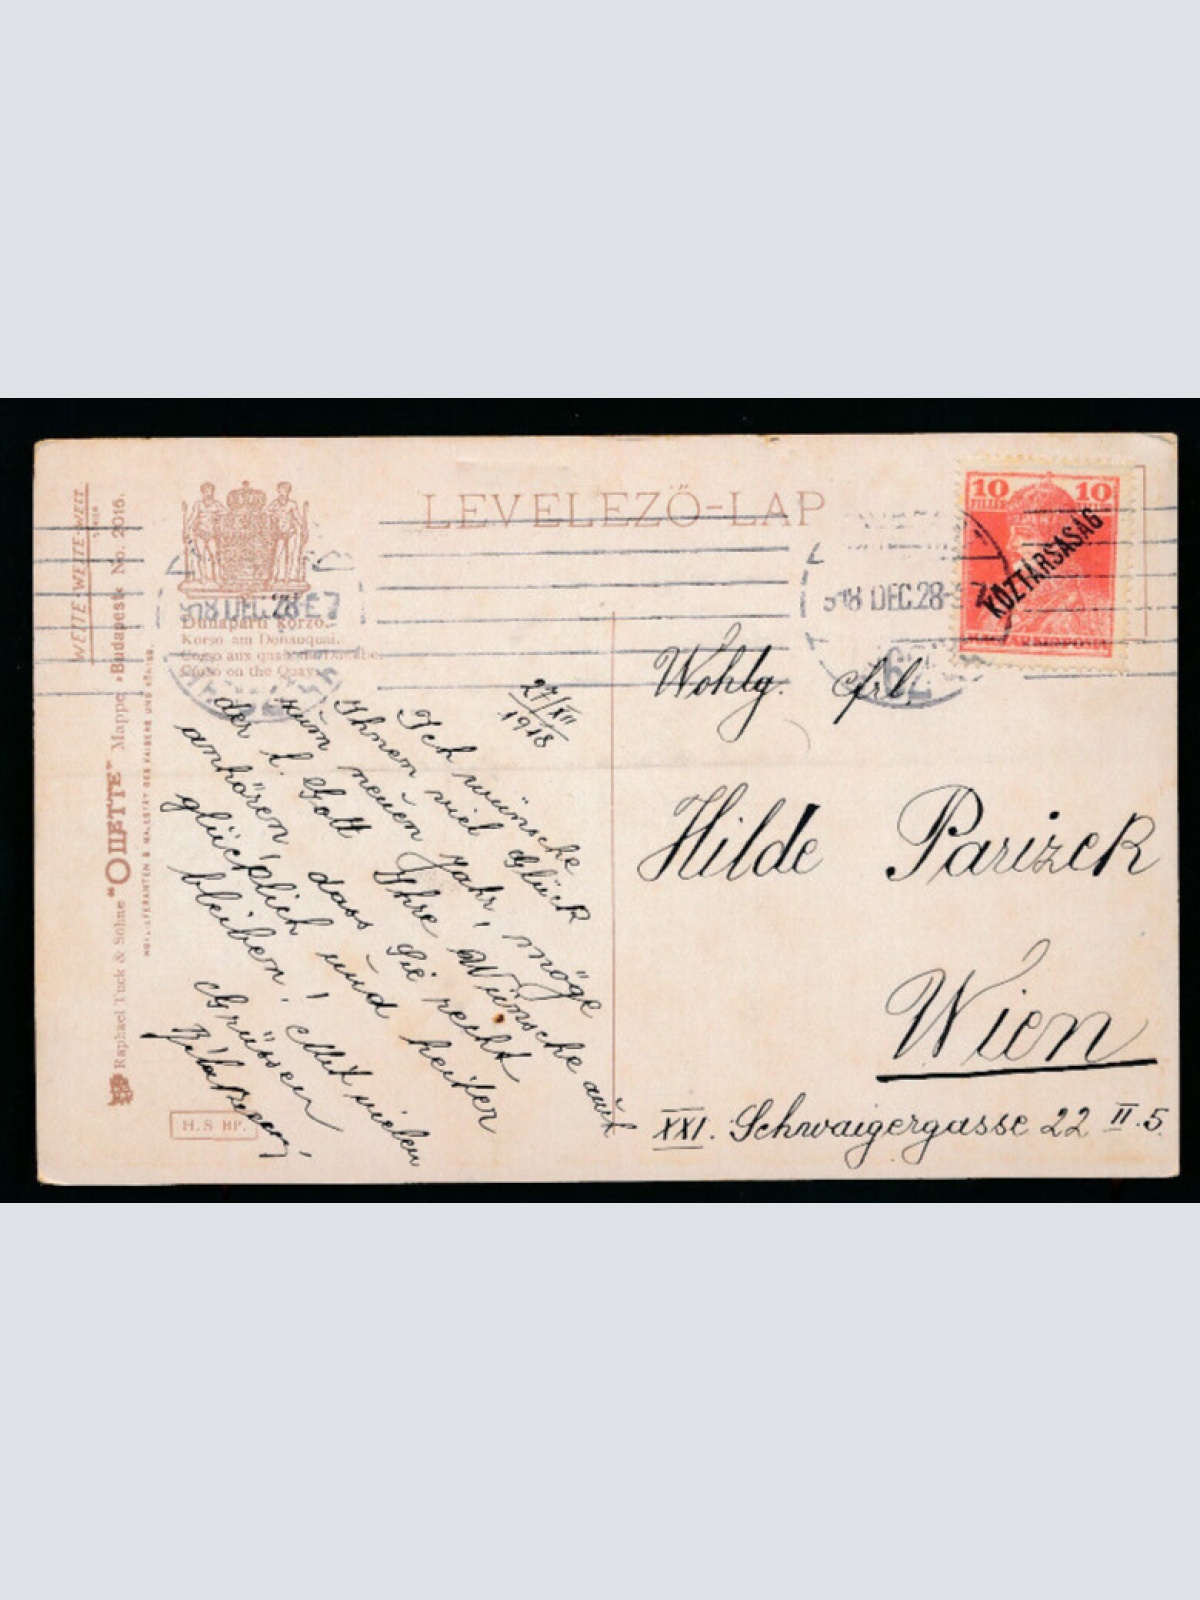 LEVELEZŐ-LAP
10 10
KÖZTÁRSASÁG
MAGYAR KIR. POSTA
918 DEC. 28-E7
918 DEC. 28-
WEITE-WEITE-WELT
WIEN
Raphael Tuck & Söhne "OILETTE" Mappe »Budapest« No. 2016.
HOFLIEFERANTEN S. MAJESTÄT DES KAISERS UND KÖNIGS.
Dunaparti korzo.
Korso am Donauquai.
Corso aux quais du Danube.
Corso on the Quays.
27/XII
1918
Ich wünsche
Ihnen viel Glück
zum neuen Jahr, möge
der l. Gott Ihre Wünsche auch
anhören, dass Sie recht
glücklich und heiter
bleiben! Mit vielen
Grüssen
H.S BP.
Wohlg. Frl.
Hilde Parizek
Wien
XXI. Schwaigergasse 22 II.5.